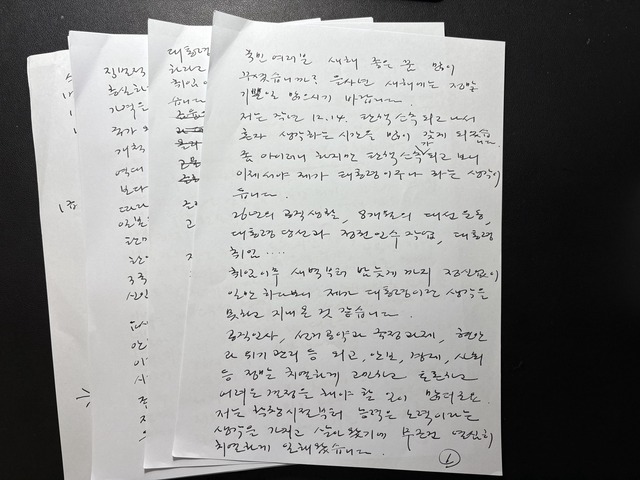 국민 여러분 새해 좋은 꿈 많이
꾸셨습니까? 을사년 새해에는 정말
기쁜일 많으시기 바랍니다.
저는 작년 12.14. 탄핵소추되고 나서
혼자 생각하는 시간을 많이 갖게 되었습니다.
좀 아이러니 하지만 탄핵소추가 되고 보니
이제서야 제가 대통령이구나 하는 생각이
듭니다.
26년의 공직생활, 8개월의 대선 운동,
대통령 당선과 정권 인수 작업, 대통령
취임....
취임이후 새벽부터 밤늦게까지 정신없이
일만 하다보니 제가 대통령이란 생각을
못하고 지내온 것 같습니다.
공직인사, 선거공약과 국정과제, 현안
과 위기관리 등 외교, 안보, 경제, 사회
등 정말 치열하게 고민하고 토론하고
어려운 결정을 해야 할 일이 많더군요.
저는 학창시절부터 능력은 노력이라는
생각을 가지고 살아왔기에 무조건 열심히
치열하게 일해왔습니다.
1
대통령
하라고
취임
습니다
국가
개척
보다
따라